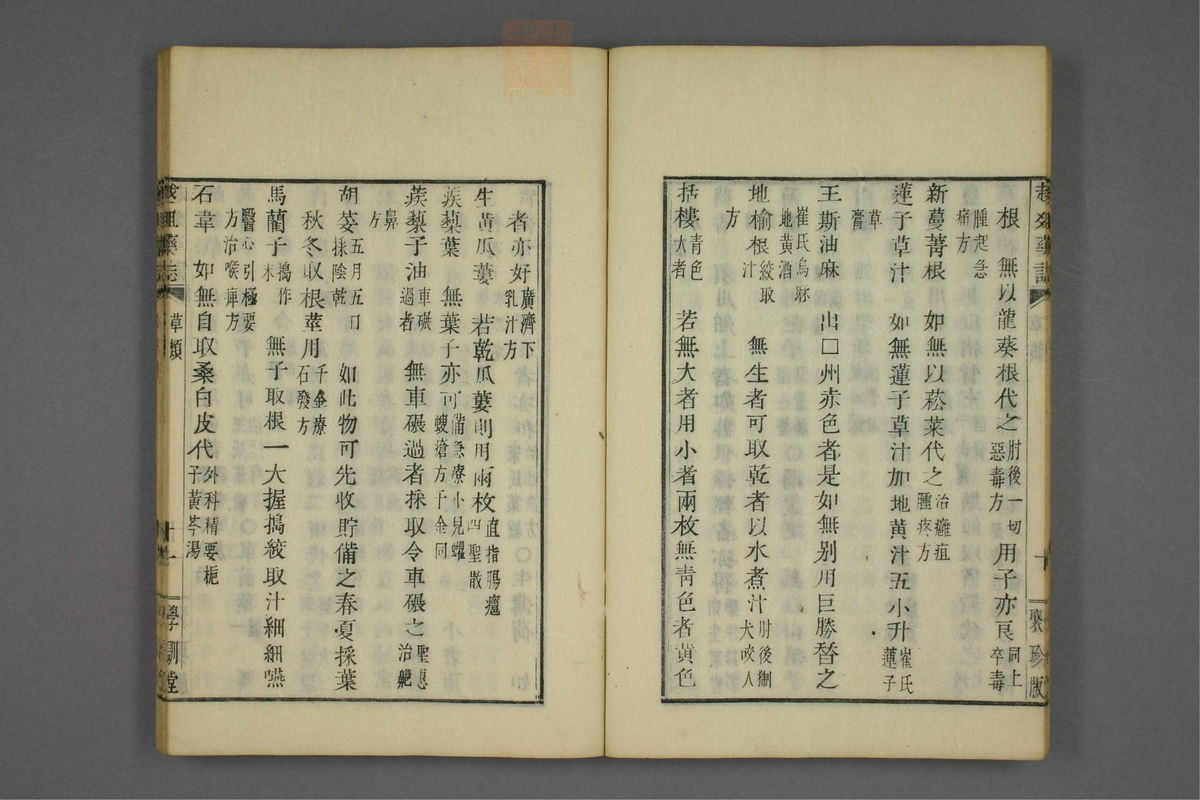 根　無以龍葵根代之肘後一切惡毒方用子亦良同上卒毒
腫起急痛方
新蔓菁根　如無以菘菜代之治癰疽腫疼方
蓮子草汁　如無蓮子草汁加地黃汁五小升崔氏蓮子
草膏
王斯油麻　出□州赤色者是如無别用巨勝替之
崔氏烏麻地黃酒
地榆根絞取汁　無生者可取乾者以水煮汁肘後猘犬咬人
方
括樓青色大者　若無大者用小者兩枚無青色者黃色
者亦好廣濟下乳汁方
生黃瓜蔞　若乾瓜蔞則用兩枚直指陽癧四聖散
蒺藜葉　無葉子亦可備急療小兒蠼螋瘡方千金同
蒺藜子油車碾過者　無車碾過者採取令車碾之聖惠治齆
鼻方
胡荽五月五日採陰乾　如此物可先收貯備之春夏採葉
秋冬取根莖用千金療石發方
馬藺子搗作末　無子取根一大握搗絞取汁細細嚥
醫心引極要方治喉痺方
石韋　如無自取桑白皮代外科精要梔子黃芩湯
草類
十
聚珍版
草類
十一
學訓堂